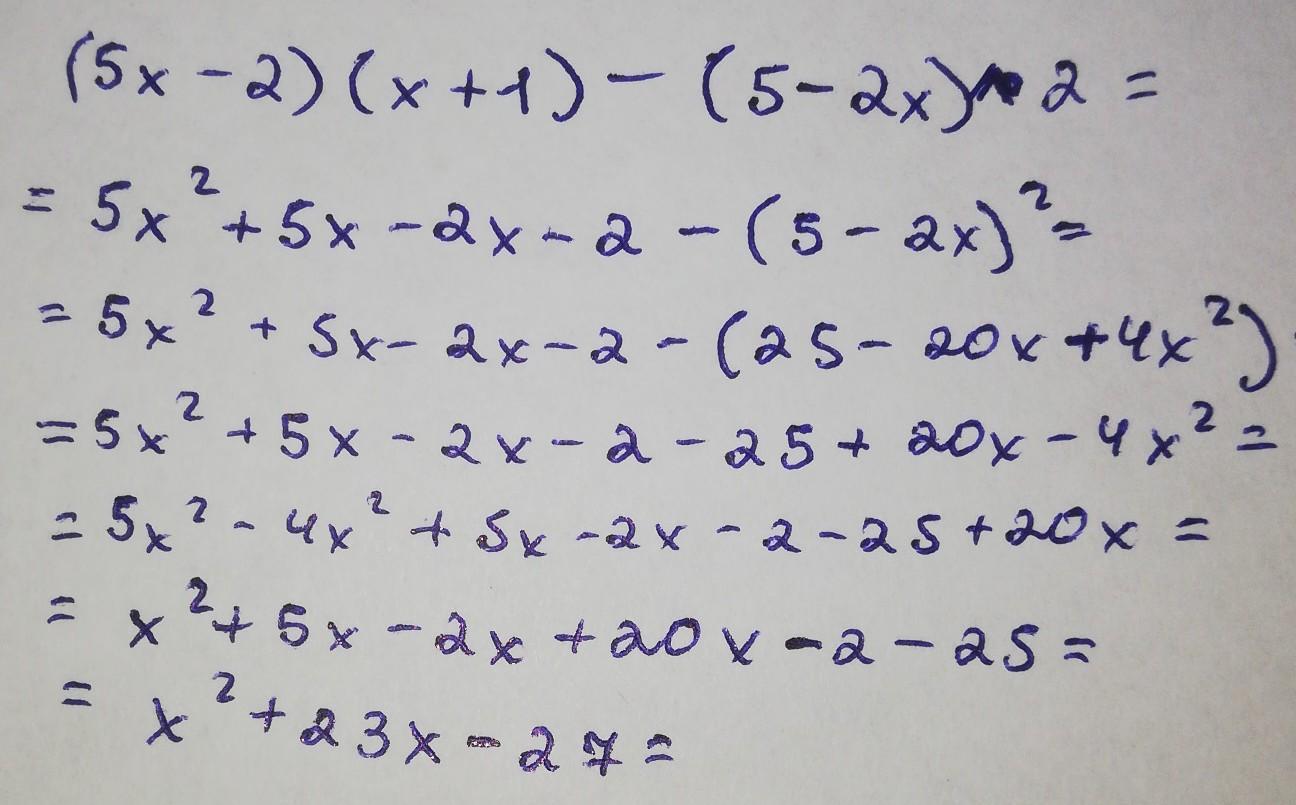 (5x - 2)(x + 1) - (5 - 2x)^2 =
= 5x² + 5x - 2x - 2 - (5 - 2x)² =
= 5x² + 5x - 2x - 2 - (25 - 20x + 4x²)
= 5x² + 5x - 2x - 2 - 25 + 20x - 4x² =
= 5x² - 4x² + 5x - 2x - 2 - 25 + 20x =
= x² + 5x - 2x + 20x - 2 - 25 =
= x² + 23x - 27 =